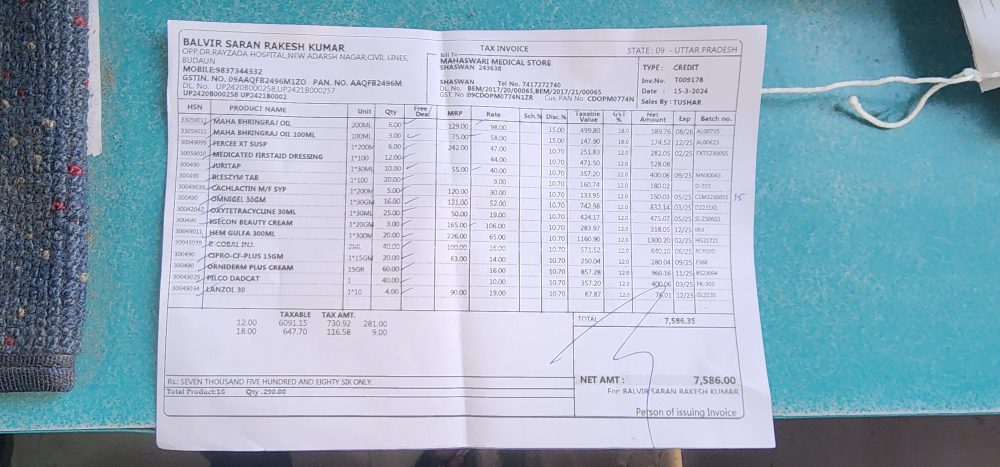 BALVIR SARAN RAKESH KUMAR
OPP.DR.RAYZADA HOSPITAL,NEW ADARSH NAGAR,CIVIL LINES,
BUDAUN
MOBILE:9837344332
GSTIN. NO. 09AAQFB2496M1ZO PAN. NO. AAQFB2496M
DL. No. UP2420B000257,UP2421B000257
UP2420B000258 UP2421B0002
TAX INVOICE
Bill To
MAHASWARI MEDICAL STORE
SHASWAN 243638
SHASWAN Tel No. 7417272740
DL. No: BEM/2017/20/00065,BEM/2017/21/00065
GST. No :09CDOPM0774N1ZR Cus. PAN No: CDOPM0774N
STATE : 09 - UTTAR PRADESH
TYPE : CREDIT
Inv.No. T009178
Date : 15-3-2024
Sales By : TUSHAR
HSN PRODUCT NAME Unit Qty Free/ Deal MRP Rate Sch.% Disc.% Taxable Value GST % Net Amount Exp Batch no.
33059011 MAHA BHRINGRAJ OIL 200ML 6.00 129.00 98.00 15.00 499.80 18.0 589.76 08/26 AL00735
33059011 MAHA BHRINGRAJ OIL 100ML 100ML 3.00 75.00 58.00 15.00 147.90 18.0 174.52 12/25 AL00623
30049099 PERCEE XT SUSP 1*200M 6.00 242.00 47.00 10.70 251.83 12.0 282.05 02/25
30059010 MEDICATED FIRSTAID DRESSING 1*100 12.00 44.00 10.70 471.50 12.0 528.08
300490 JURITAP 1*30ML 10.00 55.00 40.00 10.70 357.20 12.0 400.06 09/25 MN30043
300490 BLESZYM TAB 1*100 20.00 9.00 10.70 160.74 12.0 180.02 D-355
30049039 CACHLACTIN M/F SYP 1*200M 5.00 120.00 30.00 10.70 133.95 12.0 150.03 05/25 CLMS23005S 15
300490 OMNIGEL 30GM 1*30GM 16.00 121.00 52.00 10.70 742.98 12.0 832.14 03/25 D223141
30042042 OXYTETRACYCLINE 30ML 1*30ML 25.00 50.00 19.00 10.70 424.17 12.0 475.07 05/25
300490 IGECON BEAUTY CREAM 1*20GM 3.00 165.00 106.00 10.70 283.97 12.0 318.05 12/25
30049011 HEM GULFA 300ML 1*300M 20.00 226.00 65.00 10.70 1160.90 12.0 1300.20 02/25 HG21721
30045039 E-COBAL INJ. 2ML 40.00 100.00 16.00 10.70 571.52 12.0 640.10 06/25
300490 CIPRO-CF-PLUS 15GM 1*15GM 20.00 63.00 14.00 10.70 250.04 12.0 280.04 09/25 F368
300490 ORNIDERM PLUS CREAM 15GR 60.00 16.00 10.70 857.28 12.0 960.16 11/25 BS23094
30049029 PILCO DADCAT 1 40.00 10.00 10.70 357.20 12.0 400.06 03/25 PK-303
30049034 LANZOL 30 1*10 4.00 90.00 19.00 10.70 67.87 12.0 76.01 12/23 GL2135
TAXABLE TAX AMT.
12.00 6091.15 730.92 281.00
18.00 647.70 116.58 9.00
TOTAL 7,586.35
Rs.: SEVEN THOUSAND FIVE HUNDRED AND EIGHTY SIX ONLY.
Total Product:16 Qty :290.00
NET AMT : 7,586.00
For: BALVIR SARAN RAKESH KUMAR
Person of issuing Invoice